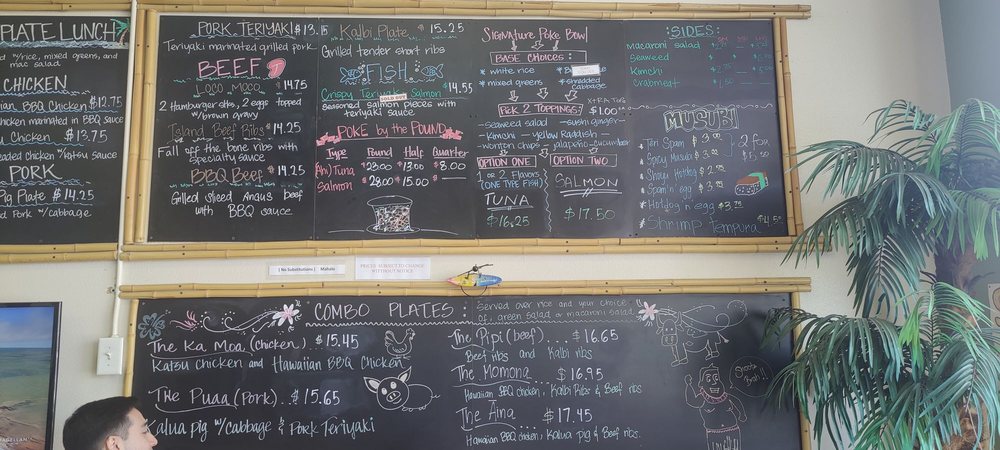 PLATE LUNCH
w/rice, mixed greens, and
mac salad
CHICKEN
BBQ Chicken $12.75
chicken marinated in BBQ
Chicken $13.75
chicken w/katsu sauce
PORK
Pig Plate $14.25
Pork w/cabbage
PORK TERIYAKI $13.15
Teriyaki marinated grilled pork
BEEF
LOCO MOCO $14.75
2 Hamburger, 2 eggs topped
w/brown gravy
Island Beef Ribs $14.25
Fall off the bone ribs with
specialty sauce
BBQ Beef $14.25
Grilled sliced Angus beef
with BBQ sauce
Kalbi Plate $15.25
Grilled tender short ribs
FISH
Crispy Teriyaki Salmon $14.55
SOLD OUT
seasoned salmon pieces with
teriyaki sauce
POKE by the POUND
Type Pound Half Quarter
(Ahi) Tuna $23.00 $13.00 $8.00
Salmon $28.00 $15.00 —
Signature Poke Bowl
BASE CHOICES:
* white rice
* mixed greens * shredded cabbage
PICK 2 TOPPINGS: $1.00
-seaweed salad -sushi ginger
-Kimchi -yellow Radish
-wonton chips -jalapeño -cucumber
OPTION ONE
1 or 2 Flavors
(ONE TYPE FISH)
TUNA
$16.25
OPTION TWO
SALMON
$17.50
SIDES:
macaroni salad
seaweed
Kimchi
Crabmeat
MUSUBI
Teri Spam
Spicy Musubi
Shoyu Hotdog
Spam n' egg
Hotdog n egg $3.75
2 for
$5.50
Shrimp tempura $4.50
[ No Substitutions ] Mahalo
PRICES SUBJECT TO CHANGE
WITHOUT NOTICE
COMBO PLATES:
Served over rice and your choice
of, green salad or macaroni salad
The Ka Moa (Chicken) $15.45
Katsu chicken and Hawaiian BBQ Chicken
The Puaa (Pork)... $15.65
Kalua pig w/cabbage & Pork Teriyaki
The Pipi (beef) $16.65
Beef ribs and Kalbi ribs
The Momona $16.95
Hawaiian BBQ chicken, Kalbi Ribs & Beef ribs
The Aina $17.45
Hawaiian BBQ chicken, Kalua pig & Beef ribs.
Shoots
Brah!